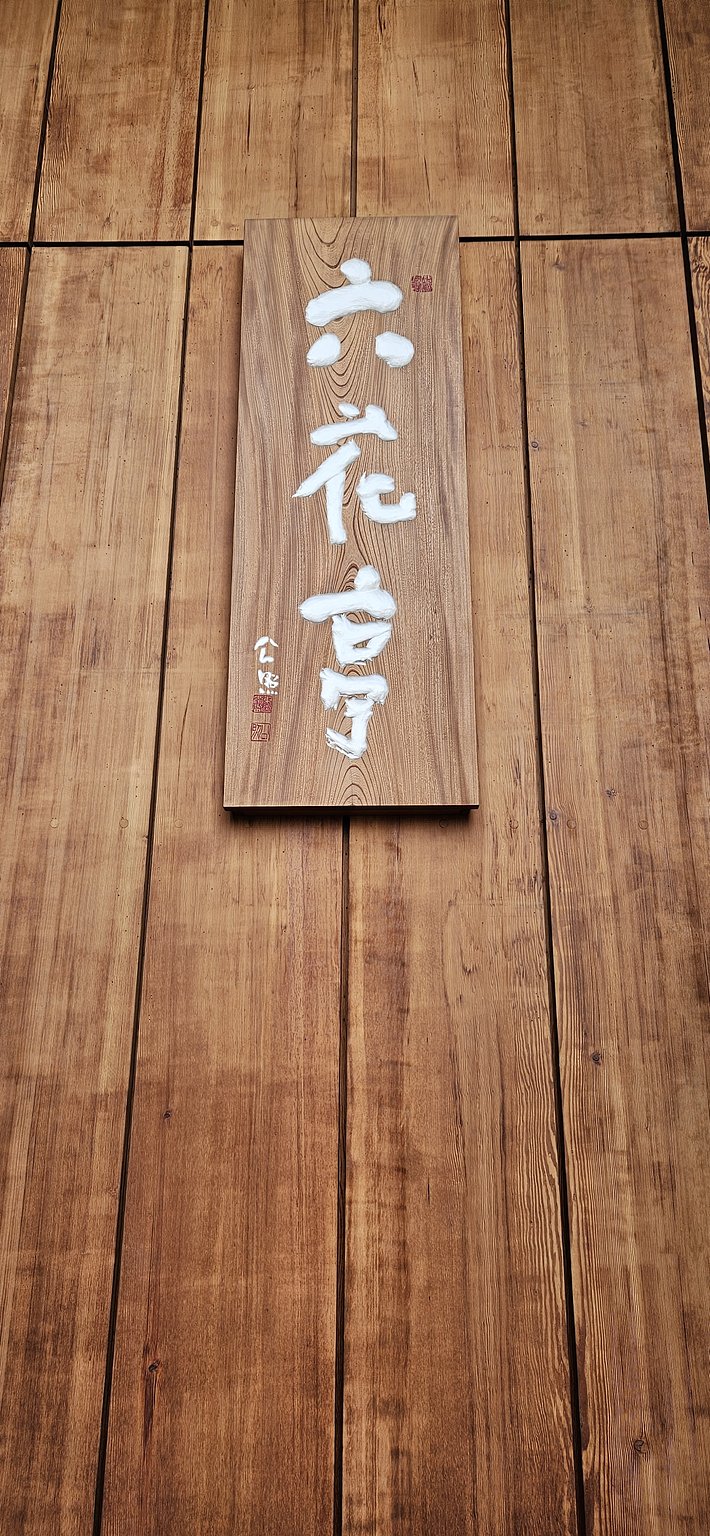 六花亭
公照